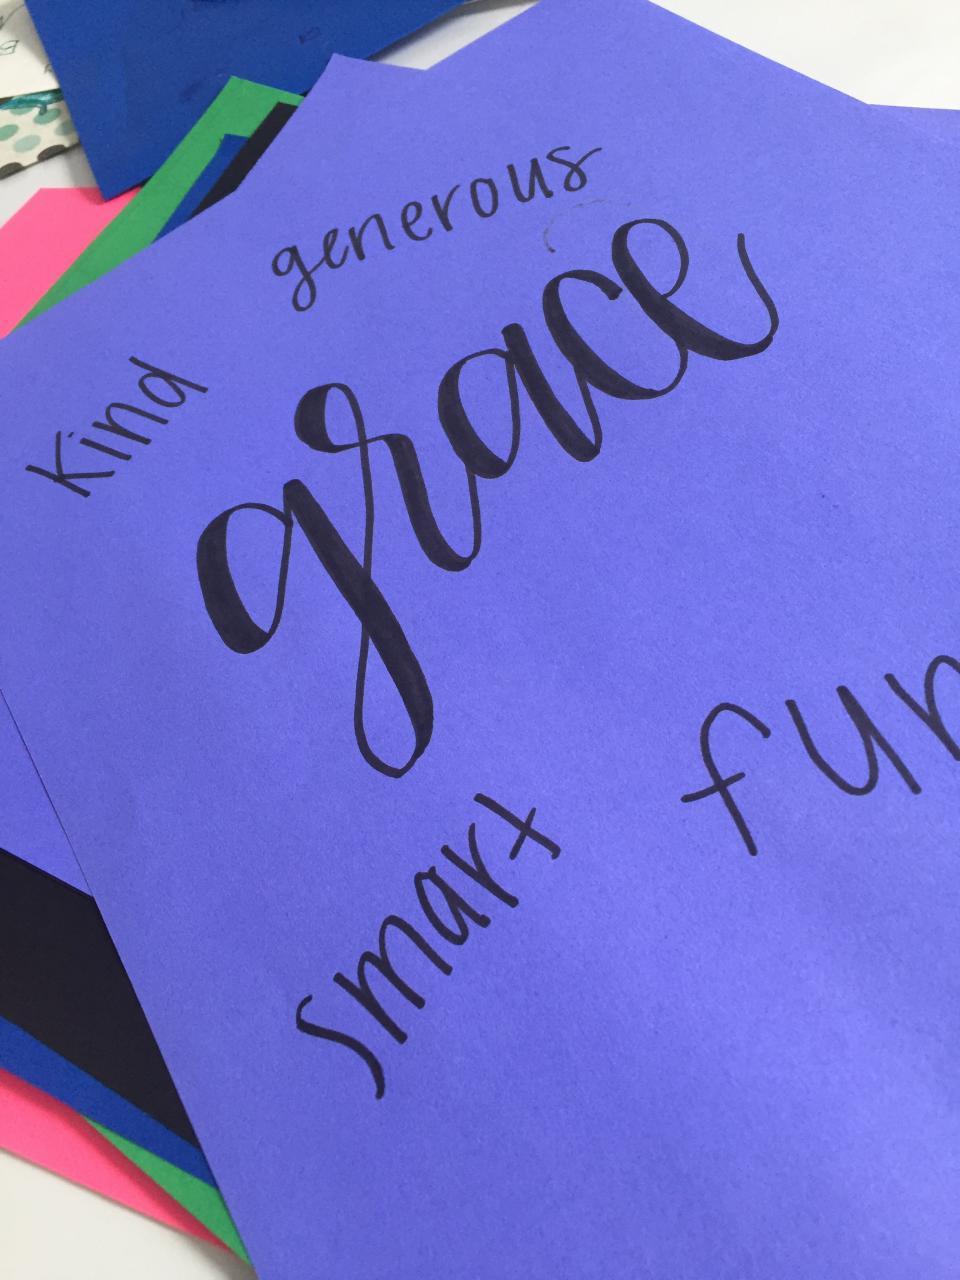 generous
Kind
grace
fun
smart